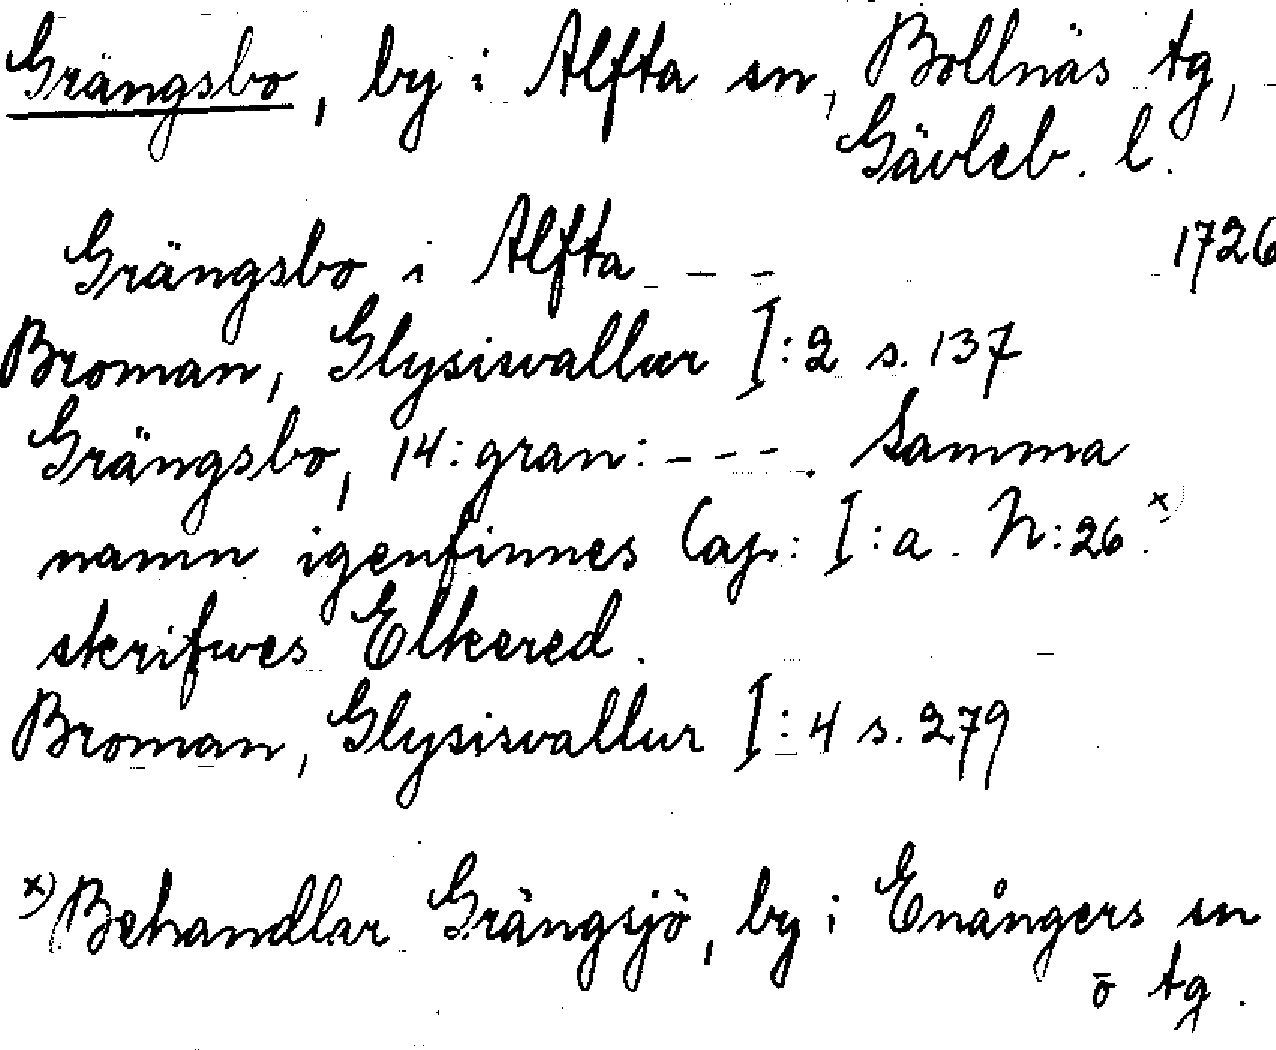 Grängsbo, by i Alfta sn, Bollnäs tg,
Gävleb. l.
Grängsbo i Alfta - - 1726
Broman, Glysisvallur I:2 s. 137
Grängsbo, 14: gran: - - -. Samma
namn igenfinnes Cap: I:a. N:26.x)
skrifwes Elkered.
Broman, Glysisvallur I:4 s. 279
x) Behandlar Grängsjö, by i Enångers sn
o tg.